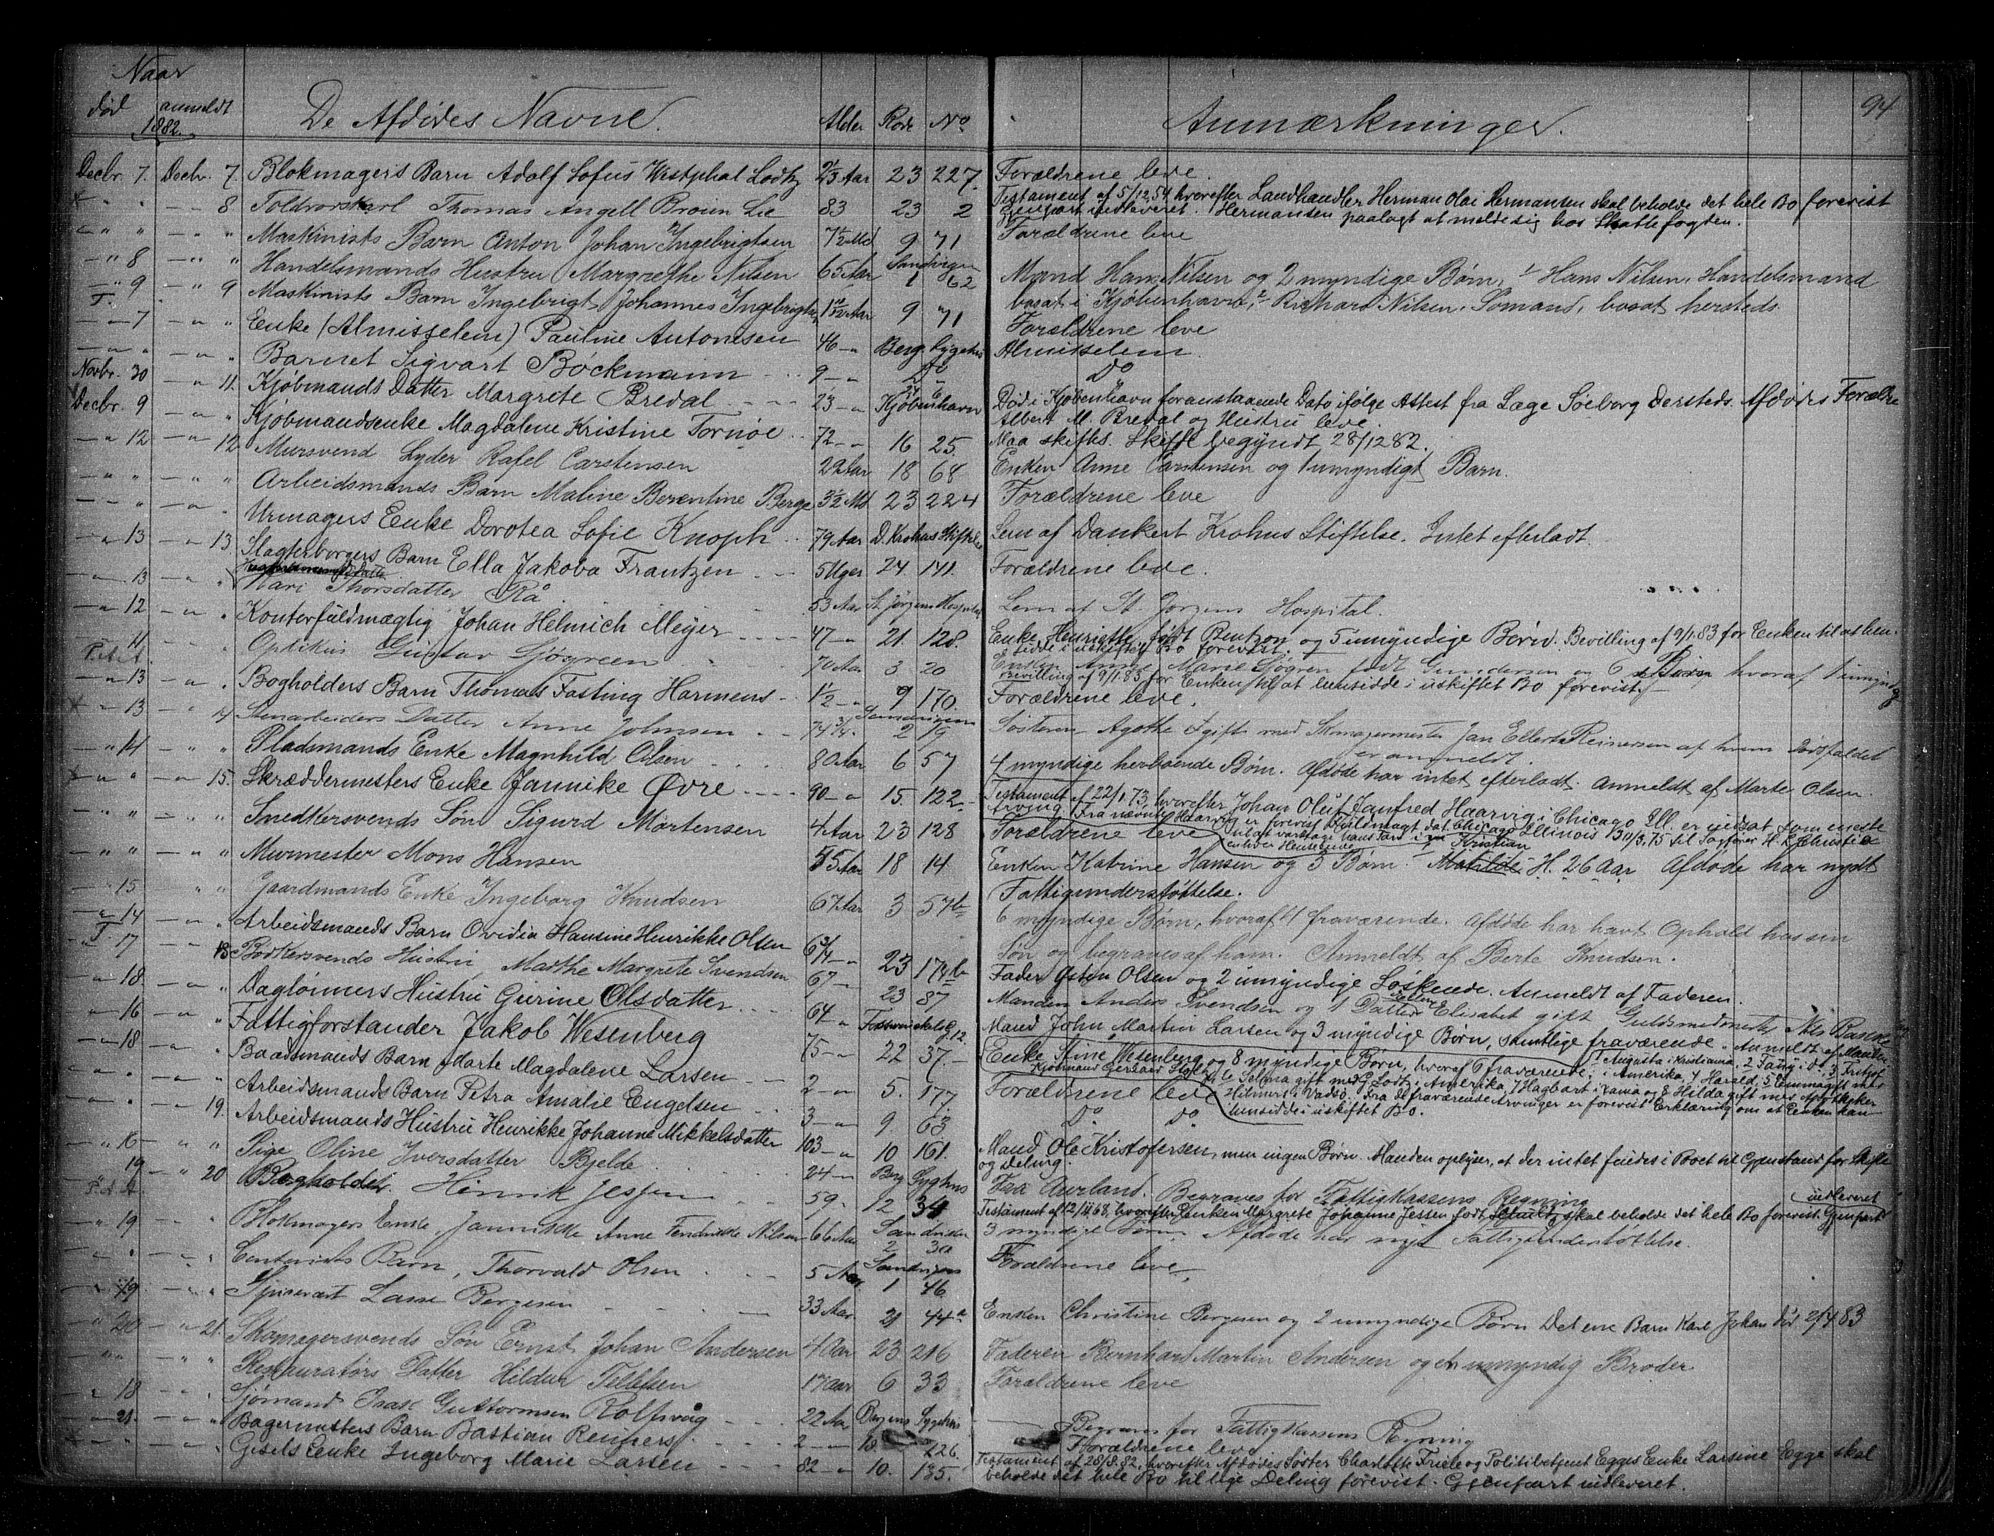 94
Naar
død anmeldt De Afdødes Navne. Alder Rode No Anmærkninger.
1882.
Decbr. 7. Decbr. 7. Blokmagers Barn Adolf Sofus Westphal 2 1/3 Aar 23 227. Forældrene leve.
" — 8 Thomas Angell Lie 83 23 2 Testament af 5/12 54 hvorefter Landhandler Herman Olai Hermansen skal beholde det hele Bo forevist
Gjenpart indleveret. Hermansen paalagt at melde sig hos Skattefogden.
" " Maskinists Barn Anton Johan Ingebrigtsen 7 1/2 Md 9 71 Forældrene leve
" 8 " " Handelsmands Hustru Margrethe Nilsen 65 Aar Sandvigen 1 62 Mand Hans Nilsen og 2 myndige Børn, 1 Hans Nilsen, Handelsmand
bosat i Kjøbenhavn, 2 Richard Nilsen, Sømand, bosat hersteds.
" 9 " 9 Maskinists Barn Ingebrigt Johannes 9 71 Forældrene leve
— 7 — " Enke (Almisselem) Pauline Antonsen 46 — Berg. Sygehus Almisselem
— " Barnet Sigvart Bøckmann 9 — Do Do
Novbr. 30 — 11. Kjøbmands Datter Margrete Bredal 23 — Kjøbenhavn Død i Kjøbenhavn foranstaaende Dato ifølge Attest fra Læge Søeborg dersteds. Afdødes Forældre
Albert M. Bredal og Hustru leve.
Decbr. 9 — " Kjøbmandsenke Magdalene Kristine Fornøe 72 — 16 25. Maa skiftes. Skifte begyndt 28/12 82.
— 12 — 12 Mursvend Lyder Rafel Carstensen 22 Aar 18 68 Enken Anne Carstensen og 1 umyndigt Barn.
" " — " Arbeidsmands Barn Maline Berentine Berge 3 1/2 Md 23 224 Forældrene leve
" " Urmagers Enke Dorotea Sofie Knoph 79 Aar D. Krohns Stiftelse Lem af Dankert Krohns Stiftelse. Intet efterladt.
— 13 — 13 Slagterborgers Barn Ella Jakoba Frantzen 5 Uger 24 141. Forældrene leve.
— 13 — " Mari Thorsdatter Rå 53 Aar St. Jørgens Hospital Lem af St. Jørgens Hospital.
— 12 — " Kontorfuldmægtig Johan Helmich Meyer 47 — 21. 128. Enke Henriette født Bentzon og 5 umyndige Børn. Bevilling af 9/1. 83 for Enken til at hen-
sidde i uskiftet Bo forevist.
11 — " Optikus Gustav Sjøgreen 70 Aar 3 20 Enken Anne Marie Sjøgren født Gundersen og 6 Børn hvoraf 1 umyndig
Bevilling af 9/1. 83 for Enken til at hensidde i uskiftet Bo forevist
— 13 — " Bogholders Barn Thomas Fasting Harmens 1/2 — 9 170. Forældrene leve.
" 13 — 14 Datter Anne Johnsen 74 3/4 Sandvigen 2 19 Søsteren Agathe gift med Skomagermester Jan Ellerts Reimersen af hvem Dødsfaldet
er anmeldt.
— 14 — " Pladsmands Enke Magnhild Olsen 80 Aar 6 57 4 myndige herboende Børn. Afdøde har intet efterladt. Anmeldt af Marte Olsen.
— " — 15. Skræddermesters Enke Jannike Øvre 90 — 15. 122 Testament af 22/1. 73, hvorefter Johan Oluf Janfred Haarvig i Chicago Ill. er indsat som eneste
Arving. Fra nævnte Haarvig er forevist Fuldmagt dat. Chicago Illinois 30/3. 75 til Sagfører H. E. Christie
" " " Snedkersvends Søn Sigurd Mortensen 4 Aar 23 128 Forældrene leve
" " " Murmester Mons Hansen 55 Aar 18 14 Enken Katrine Hansen og 3 Børn. Kristian H. 26 Aar Afdøde har nydt
Fattigunderstøttelse.
15 " Gaardmands Enke Ingeborg Knudsen 67 Aar 3 57 b 6 myndige Børn, hvoraf 4 fraværende. Afdøde har havt Ophold hos sin
Søn og begraves af ham. Anmeldt af Berte Knudsen.
— 14 — " Arbeidsmands Barn Ovidia Hansine Henrikke Olsen 6 3/4 — 23 174 b Fader Østen Olsen og 2 umyndige Søskende. Anmeldt af Faderen.
17 — 18 Bødkersvends Hustru Marthe Margrete Svendsen 67 — 23 87 Manden Anders Svendsen og 1 Datter Elisabet gift Guldsmedmester
— 18. — " Dagløiners Hustru Gurine Olsdatter 64 — Mand John Martin Larsen og 3 myndige Børn, samtlige fraværende. Anmeldt af Manden
— 16 — " Fattigforstander Jakob Wesenberg 75 — 22 37. Enke Stine Wesenberg og 8 myndige Børn, hvoraf 6 fraværende: 1 Augusta i Kristiania, 2 Fang i do, 3 Fritjof
i Amerika, 4 Harald, 5 Emma gift med
Kjøbmand Gerhard 6 Selma gift med i Amerika, 7 Hagbart i Rana og 8 Hilda gift med Apotheker
i Vadsø. Fra de fraværende Arvinger er forevist Erklæring om at Enken kan
hensidde i uskiftet Bo.
— 18 — Baadsmands Barn Marte Magdalene Larsen 2 — 5. 177 Forældrene leve
— " — " Arbeidsmands Barn Petra Amalie Engelsen 3 — 9. 63 Do Do
— " — 19. Arbeidsmands Hustru Henrikke Johanne Mikkelsdatter 103 — 10 161. Mand Ole Kristofersen, men ingen Børn. Manden oplyser, at der intet findes i Boet til Gjenstand for Skifte
og Deling.
" 16 — " Pige Oline Iversdatter Bjelde 24 — Berg Sygehus Fra Aurland. Begraves for Fattigkassens Regning
19 — " 20 Bogholder Henrik Jessen 59. 12 34 Testament af 12/11 68, hvorefter Enken Margrete Johanne Jessen født skal beholde det hele Bo forevist. Gjenpart
indleveret
" 19 Blokmagers Enke Jannikke Anne Fredrikke Nilsen 66 Aar Sandviken 2 30 3 myndige Børn. Afdøde har nydt Fattigunderstøttelse.
" Barn, Thorvald Olsen 5 Aar Sandvigen 1 46 Forældrene leve,
" 19 Spisevært Lasse Bergesen 33 Aar 21 44 a Enken Christine Bergesen og 2 umyndige Børn Det ene Barn Karl Johan død 2/4 83
" 20 — " 21. Skomagersvends Søn Ernst Johan Andersen 4 Aar 23 216 Faderen Bernhard Martin Andersen og en umyndig Broder.
" " " Restauratørs Datter Hildur Tellefsen 17 Aar 6 33 Forældrene leve
— 18 — " Sjømand Isak Guttormsen Rolfsvåg 22 Aar Bergens Sygehus Begraves for Fattigkassens Regning
— 21. — " Bagermesters Barn Bastian Reimers 2 — 18 126 Forældrene leve
— " Enke Ingeborg Marie Larsen 82 — 10. 135. Testament af 28/8. 82, hvorefter Afdødes Søster Charlotte Friele og Politibetjent Egges Enke Larsine Egge skal
beholde det hele Bo til lige Deling forevist. Gjenpart indleveret.